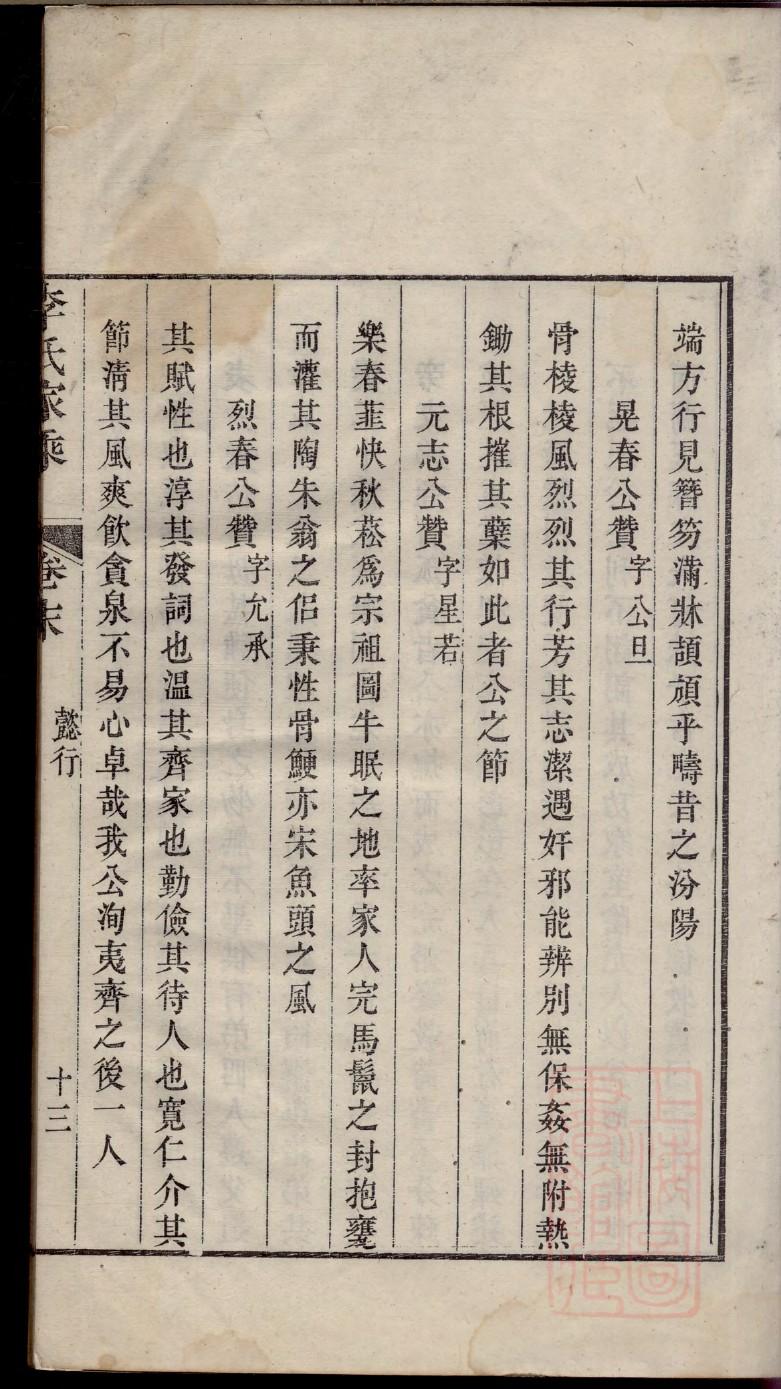 端方行見簪笏滿牀頡頏乎疇昔之汾陽
晃春公贊字公旦
骨棱棱風烈烈其行芳其志潔遇奸邪能辨別無保姦無附熱
鋤其根摧其蘖如此者公之節
元志公贊字星若
樂春韭快秋菘為宗祖圖牛眠之地率家人完馬鬛之封抱甕
而灌其陶朱翁之侶秉性骨鯁亦宋魚頭之風
烈春公贊字允承
其賦性也淳其發詞也温其齊家也勤儉其待人也寬仁介其
節淸其風爽飮貪泉不易心卓哉我公洵夷齊之後一人
李氏家乘 卷末 懿行 十三